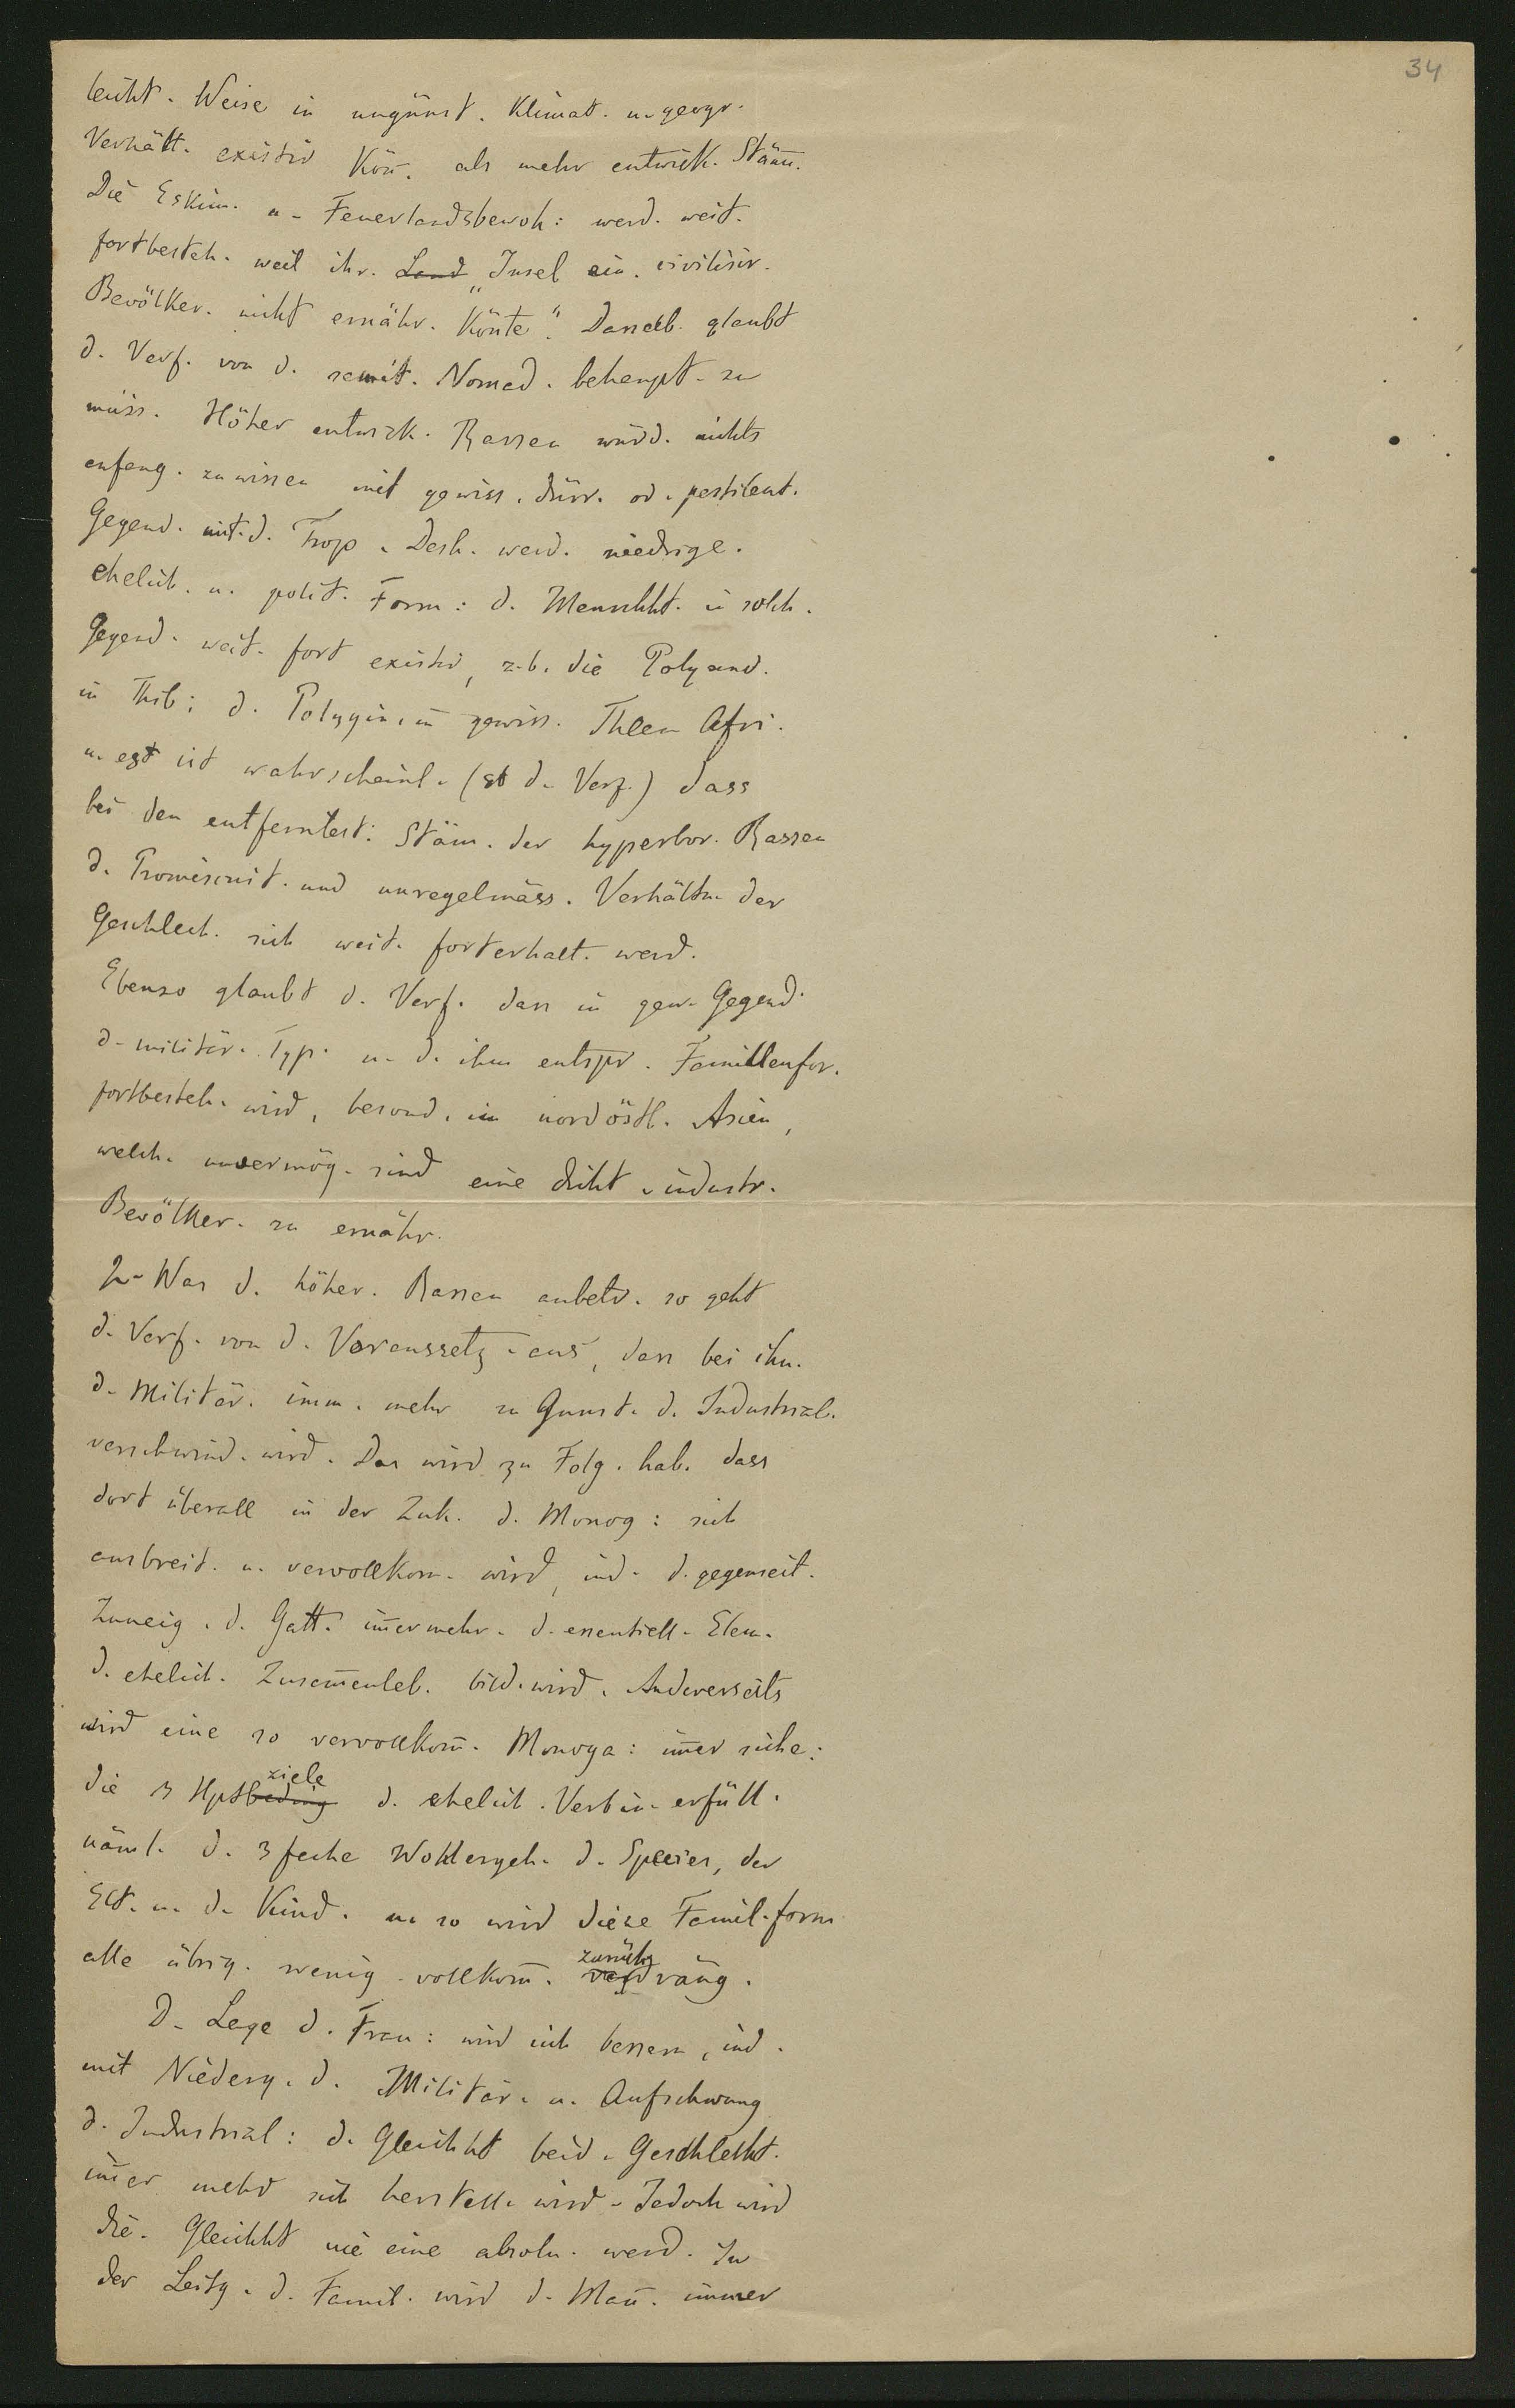 34
leicht. Weise in ungünst. Klimat. u. geogr.
Verhält. existir Kön̄. als mehr entwick. Stäm̄.
Die Eskim. u. Feuerlandsbewoh: werd. weit.
fortbesteh. weil ihr. Land „Insel ein. civilisir.
Bevölker. nicht ernähr. Könte“. Dasselb. glaubt
d. Verf. von d. semit. Nomad. behaupt. zu
müss. Höher entwick. Rassen würd. nichts
anfang. zu wissen mit gewiss. dürr. od. pestilent.
Gegend. unt. d. Trop. Desh. werd. niedrige.
ehelich. u. polit. Form: d. Menschht. in solch.
Gegend. weit. fort existir, z.b. die Polyand.
in Thib; d. Polygin. in gewiss. Thlen Afri.
u. est ist wahrscheinl. (st d. Verf.) dass
bei den entferntest: Stäm. der hyperbor. Rassen
d. Promiscuit. und unregelmäss. Verhältn. der
Geschlech. sich weit. forterhalt. werd.
Ebenso glaubt d. Verf. dass in gew. Gegend.
d. militär. Typ. u. d. ihm entspr. Familienfor.
fortbesteh. wird, besond. im nordöstl. Asien,
welch. unvermög. sind eine dicht. industr.
Bevölker. zu ernähr.
2. Was d. höher. Rassen anbetr. so geht
d. Verf. von d. Voraussetz. aus, dass bei ihn.
d. Militär. imm. mehr zu Gunst. d. Industrial.
verschwind. wird. Das wird zu Folg. hab. dass
dort überall in der Zuk. d. Monog: sich
ausbreit. u. vervollkom. wird, ind. d. gegenseit.
Zuneig. d. Gatt. im̄ermehr. d. essentiell. Elem.
d. ehelich. Zusam̄enleb. bild. wird. Andererseits
wird eine so vervollkom̄. Monoga: im̄er siche:
die 3 Hptbeding ziele d. ehelich. Verbin. erfüll.
näml. d. 3 fache Wohlergeh. d. Species, der
Elt. u. d. Kind. u. so wird diese Famil. form
alle übrig. wenig. vollkom̄. verdräng. zurück
D. Lage d. Frau: wird sich bessern, ind.
mit Niederg. d. Militär. u. Aufschwung
d. Industrial: d. Gleichht beid. Geschlecht.
im̄er mehr sich herstell. wird. Jedoch wird
die. Gleichht nie eine absolu. werd. In
der Leitg. d. Famil. wird d. Man̄. immer